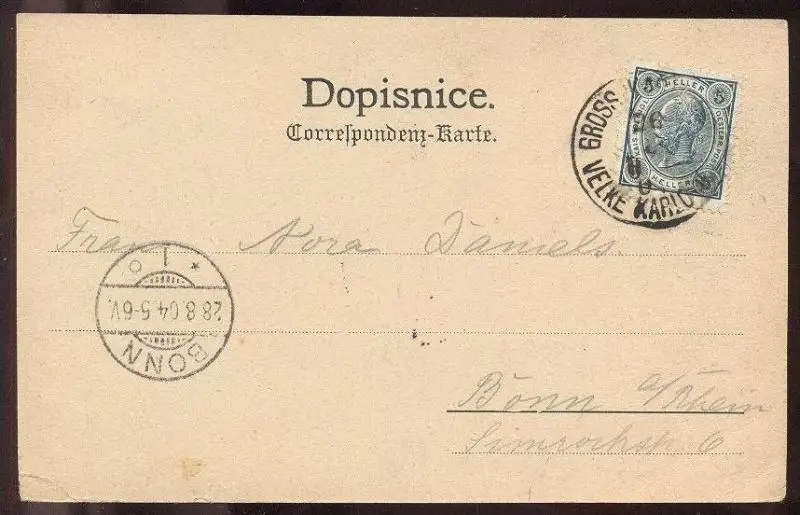 Dopisnice.
Correspondenz-Karte.
GROSS
VELKE KARLO
5 HELLER 5
HELLER
Frau Nora Daniels.
1
28.8.04.5-6V.
BONN
Bonn a/Rhein
Simrockstr. 6